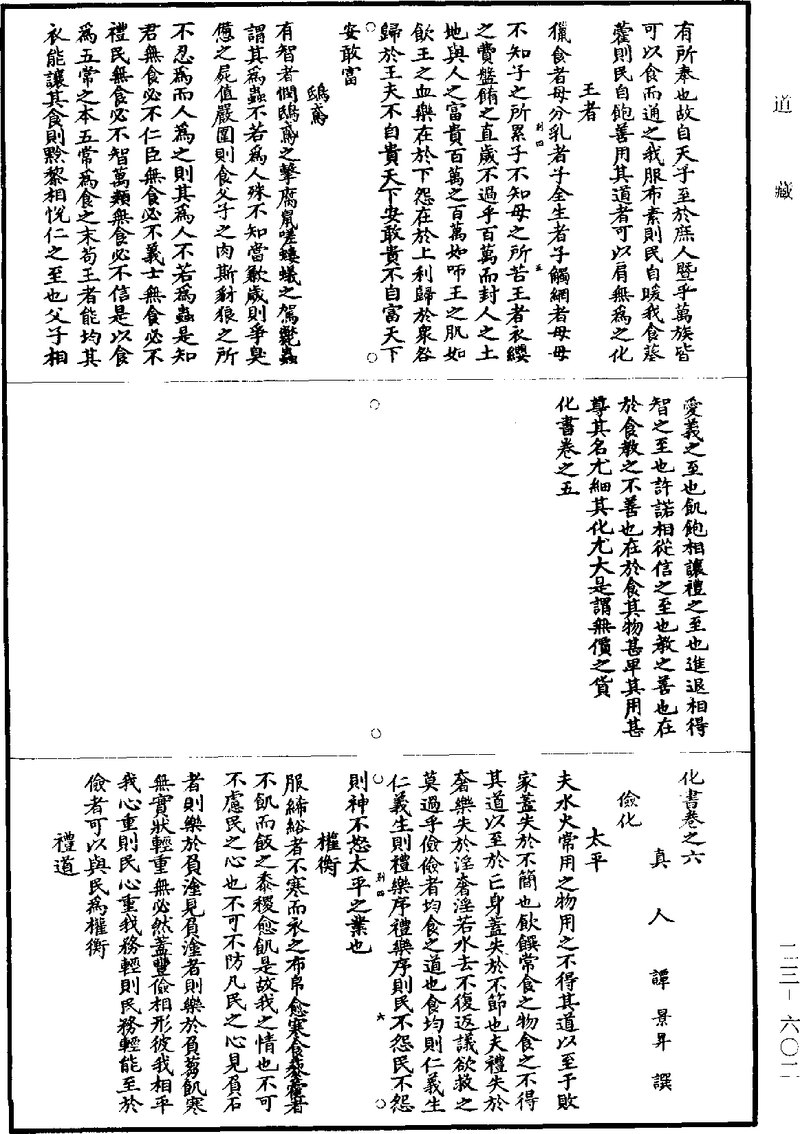 道藏
有所奉也故自天子至於庶人暨乎萬族皆
可以食而通之我服布素則民自暖我食葵
藿則民自飽善用其道者可以肩無為之化
王者
獵食者母分乳者子全生者子觸網者母母
不知子之所累子不知母之所苦王者衣纓
之費盤餚之直歲不過乎百萬而封人之土
地與人之富貴百萬之百萬如咂王之肌如
飲王之血樂在於下怨在於上利歸於衆咎
歸於王夫不自貴天下安敢貴不自富天下
安敢富
鴟鳶
有智者憫鴟鳶之擊腐鼠嗟螻蟻之駕斃蟲
謂其為蟲不若為人殊不知當歉歲則爭臭
憊之屍值嚴圍則食父子之肉斯豺狼之所
不忍為而人為之則其為人不若為蟲是知
君無食必不仁臣無食必不義士無食必不
禮民無食必不智萬類無食必不信是以食
為五常之本五常為食之末苟王者能均其
衣能讓其食則黔黎相悅仁之至也父子相
愛義之至也飢飽相讓禮之至也進退相得
智之至也許諾相從信之至也教之善也在
於食教之不善也在於食其物甚卑其用甚
尊其名尤細其化尤大是謂無價之貨
化書卷之五
化書卷之六
真人譚景昇譔
儉化
太平
夫水火常用之物用之不得其道以至于敗
家蓋失於不簡也飲饌常食之物食之不得
其道以至於亡身蓋失於不節也夫禮失於
奢樂失於淫奢淫若水去不復返議欲救之
莫過乎儉儉者均食之道也食均則仁義生
仁義生則禮樂序禮樂序則民不怨民不怨
則神不怒太平之業也
權衡
服絺綌者不寒而衣之布帛愈寒食藜藿者
不飢而飯之黍稷愈飢是故我之情也不可
不慮民之心也不可不防凡民之心見負石
者則樂於負塗見負塗者則樂於負芻飢寒
無實狀輕重無必然蓋豐儉相形彼我相平
我心重則民心重我務輕則民務輕能至於
儉者可以與民為權衡
禮道
二三－六〇二